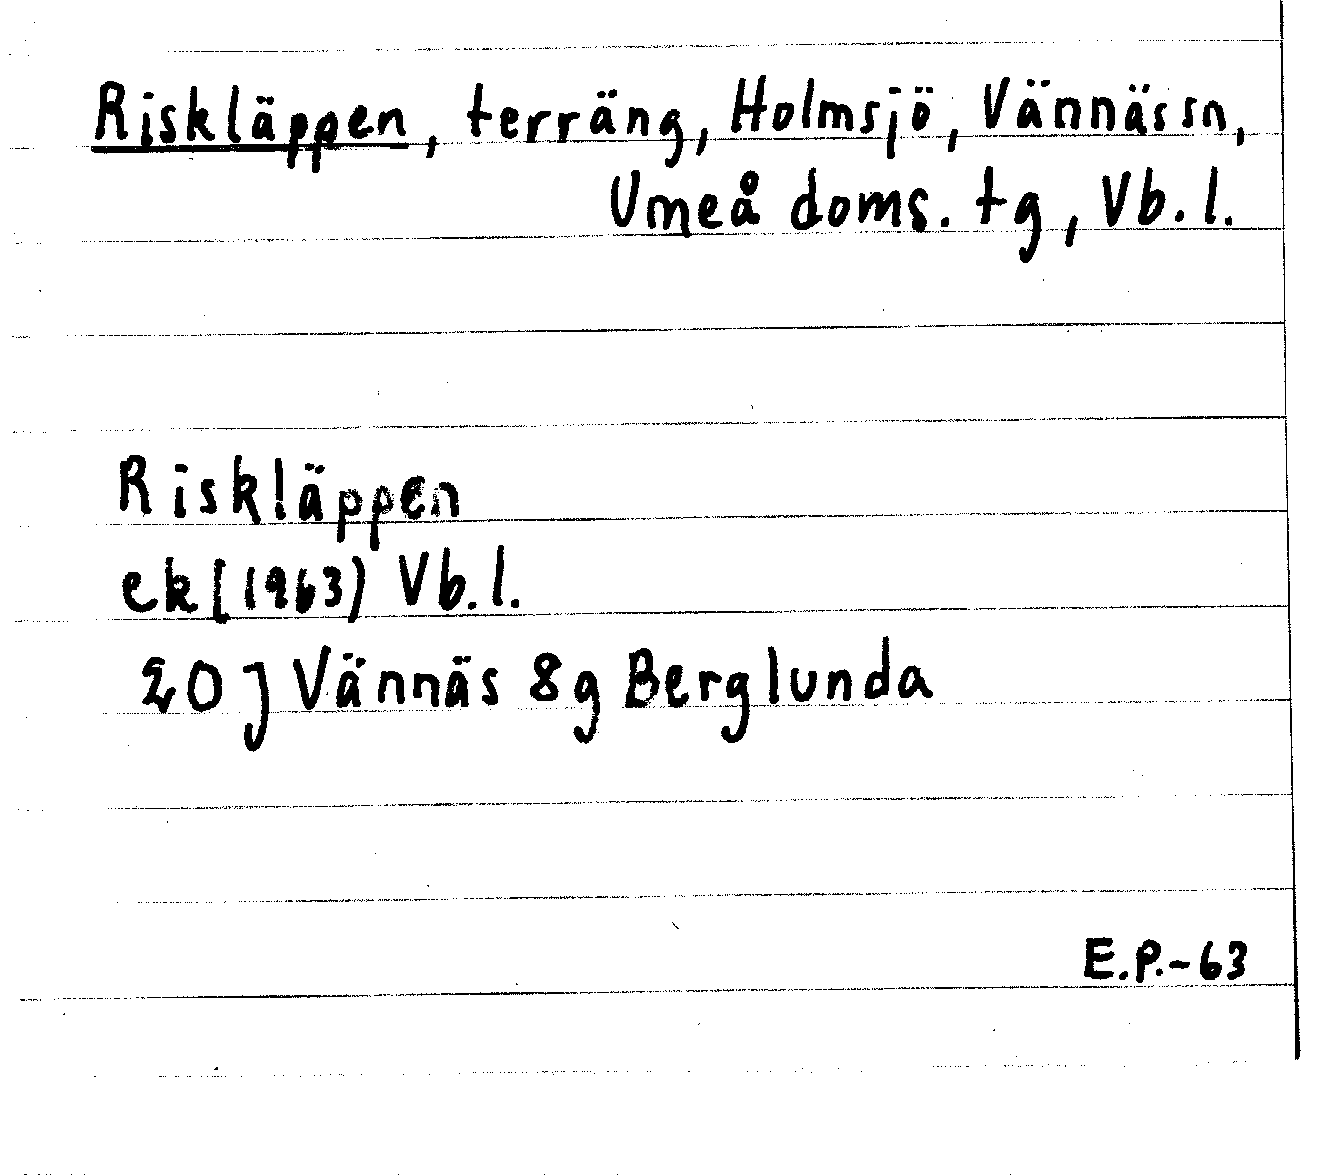 Riskläppen, terräng, Holmsjö, Vännäs sn,
Umeå doms. tg, Vb. l.
Riskläppen
ek (1963) Vb. l.
20 J Vännäs 8g Berglunda
E.P.-63